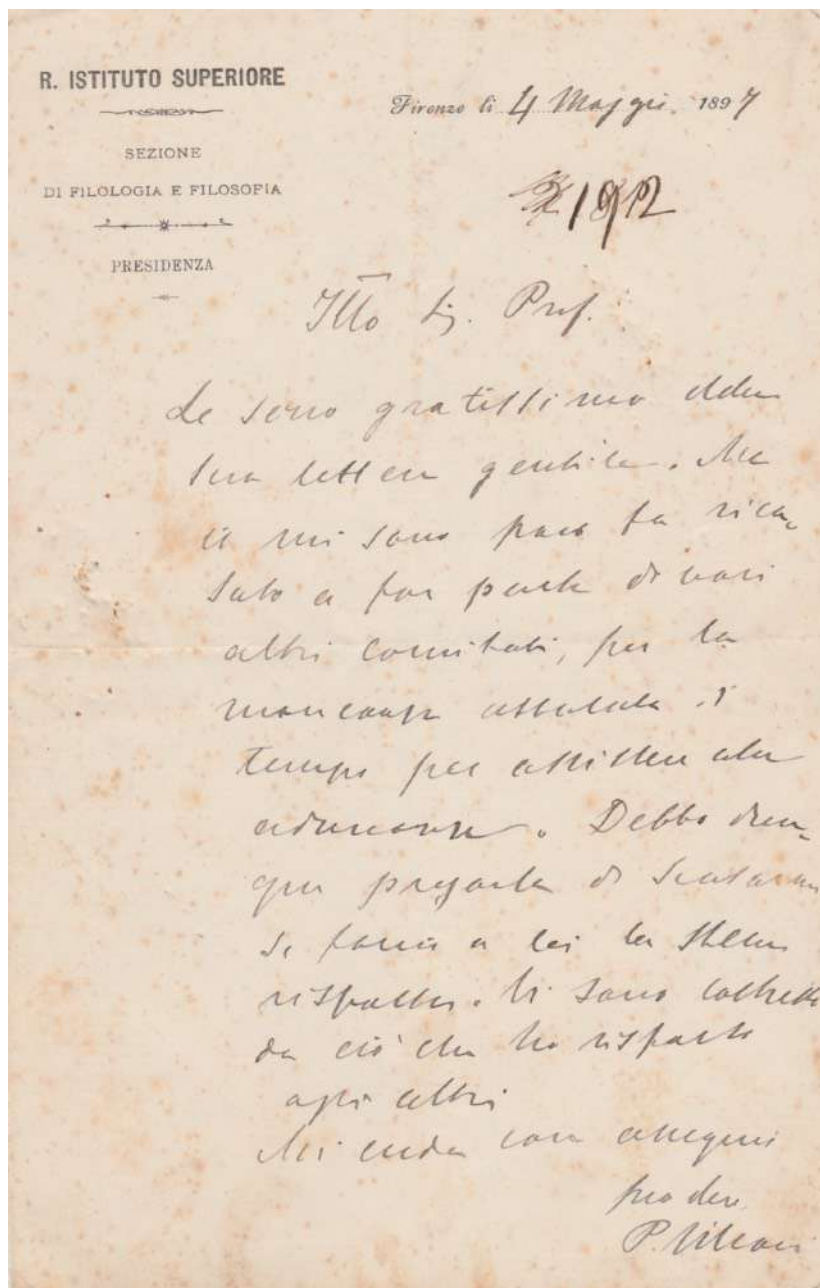 R. ISTITUTO SUPERIORE
SEZIONE
DI FILOLOGIA E FILOSOFIA
PRESIDENZA
Firenze li 4 Maggio. 1897
Illo Sig. Prof.
Le sono gratissimo della
sua lettera gentile. Ma
io mi sono poco fa ricu-
sato a far parte di vari
altri comitati, per la
mancanza assoluta di
tempo per assistere alle
adunanze. Debbo dun-
que pregarla di scusarmi
se faccio a lei la stessa
risposta. Vi sono costretto
da ciò che ho risposto
agli altri
Mi creda con ossequio
suo dev.
P. Villari